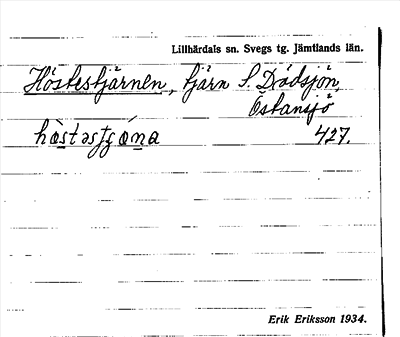 Lillhärdals sn. Svegs tg. Jämtlands län.
Höstestjärnen, tjärn S. Dödsjön,
Östansjö
427.
Erik Eriksson 1934.